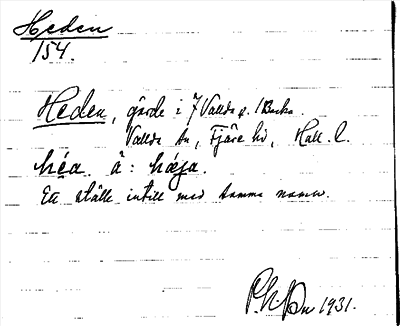 Heden
154.
Heden, gärde i 7 Vallda o. 1 Backa.
Vallda sn, Fjäre hd, Hall. l.
héa. å: hæja.
Ett ställe intill med samma namn.
1931.